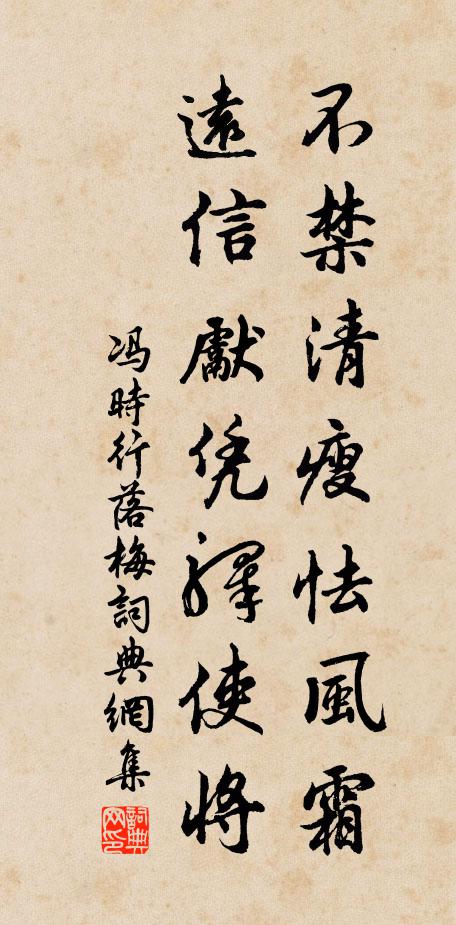 不禁清瘦怯風霜
遠信獻凭驛使將
冯時行落梅詞典網集
詞典网印